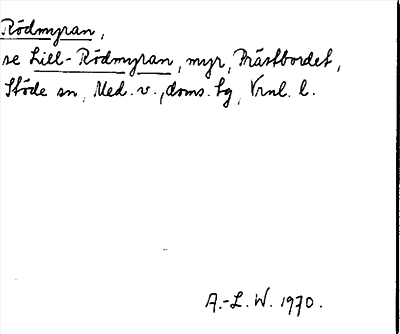 Rödmyran,
se Lill-Rödmyran, myr, Prästbordet,
Stöde sn, Med. v., doms. tg, Vrnl. l.
A.-L. W. 1970.